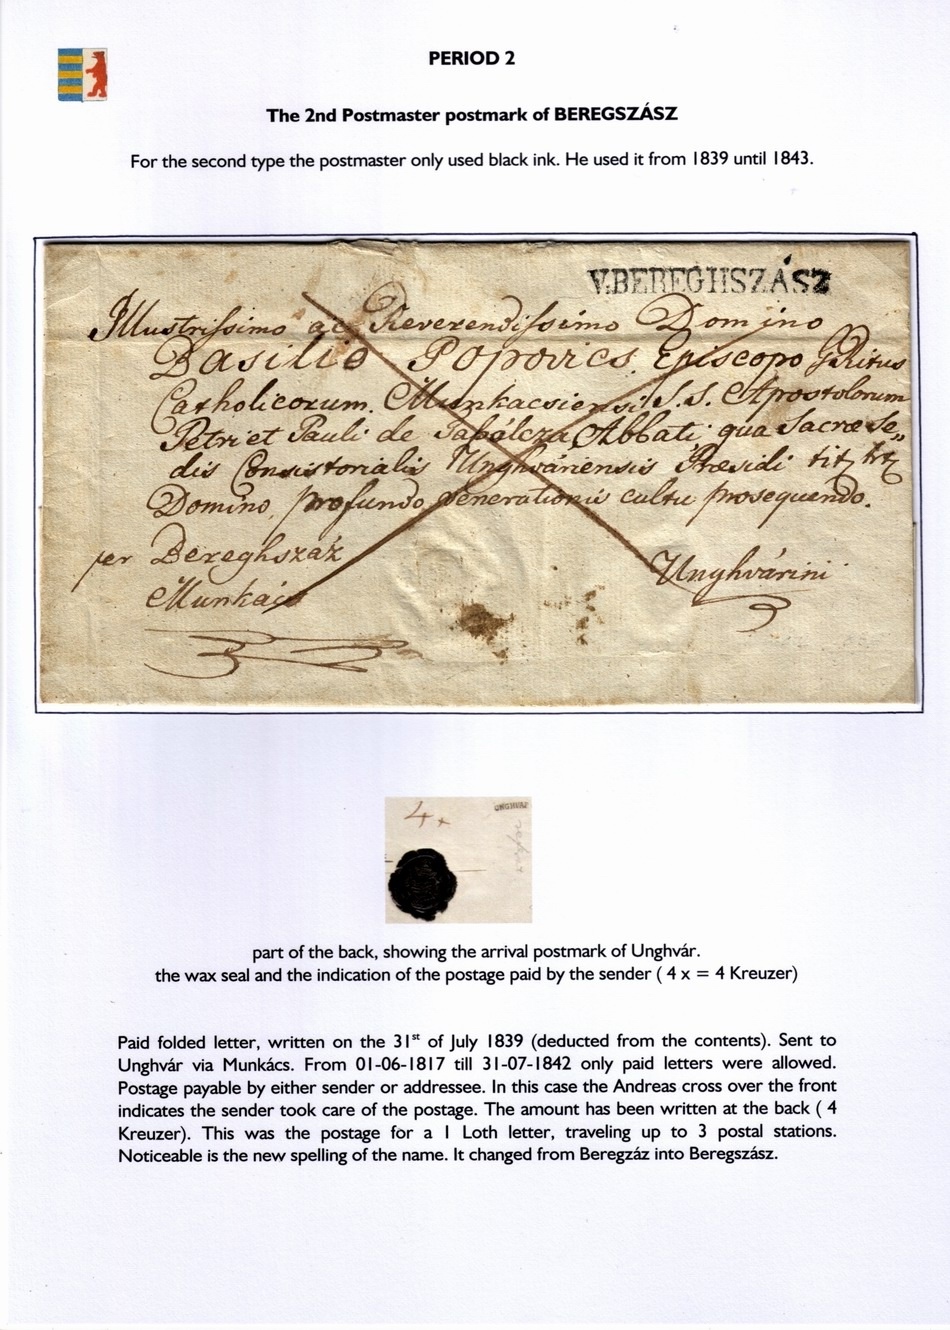 PERIOD 2
The 2nd Postmaster postmark of BEREGSZÁSZ
For the second type the postmaster only used black ink. He used it from 1839 until 1843.
V.BEREGHSZÁSZ
Illustrissimo ac Reverendissimo Domino
Basilio Popovics, Episcopo G. Ritus
Catholicorum Munkacsiensi S.S. Apostolorum
Petri et Pauli de Tapólcza Abbati, qua Sacrae Se„
dis Consistorialis Unghváriensis Praesidi
Domino, profundo venerationis cultu prosequendo.
per Bereghszáz
Munkács
Unghvárini
4 x
UNGHVÁR
part of the back, showing the arrival postmark of Unghvár.
the wax seal and the indication of the postage paid by the sender ( 4 x = 4 Kreuzer)
Paid folded letter, written on the 31st of July 1839 (deducted from the contents). Sent to
Unghvár via Munkács. From 01-06-1817 till 31-07-1842 only paid letters were allowed.
Postage payable by either sender or addressee. In this case the Andreas cross over the front
indicates the sender took care of the postage. The amount has been written at the back ( 4
Kreuzer). This was the postage for a 1 Loth letter, traveling up to 3 postal stations.
Noticeable is the new spelling of the name. It changed from Beregzáz into Beregszász.